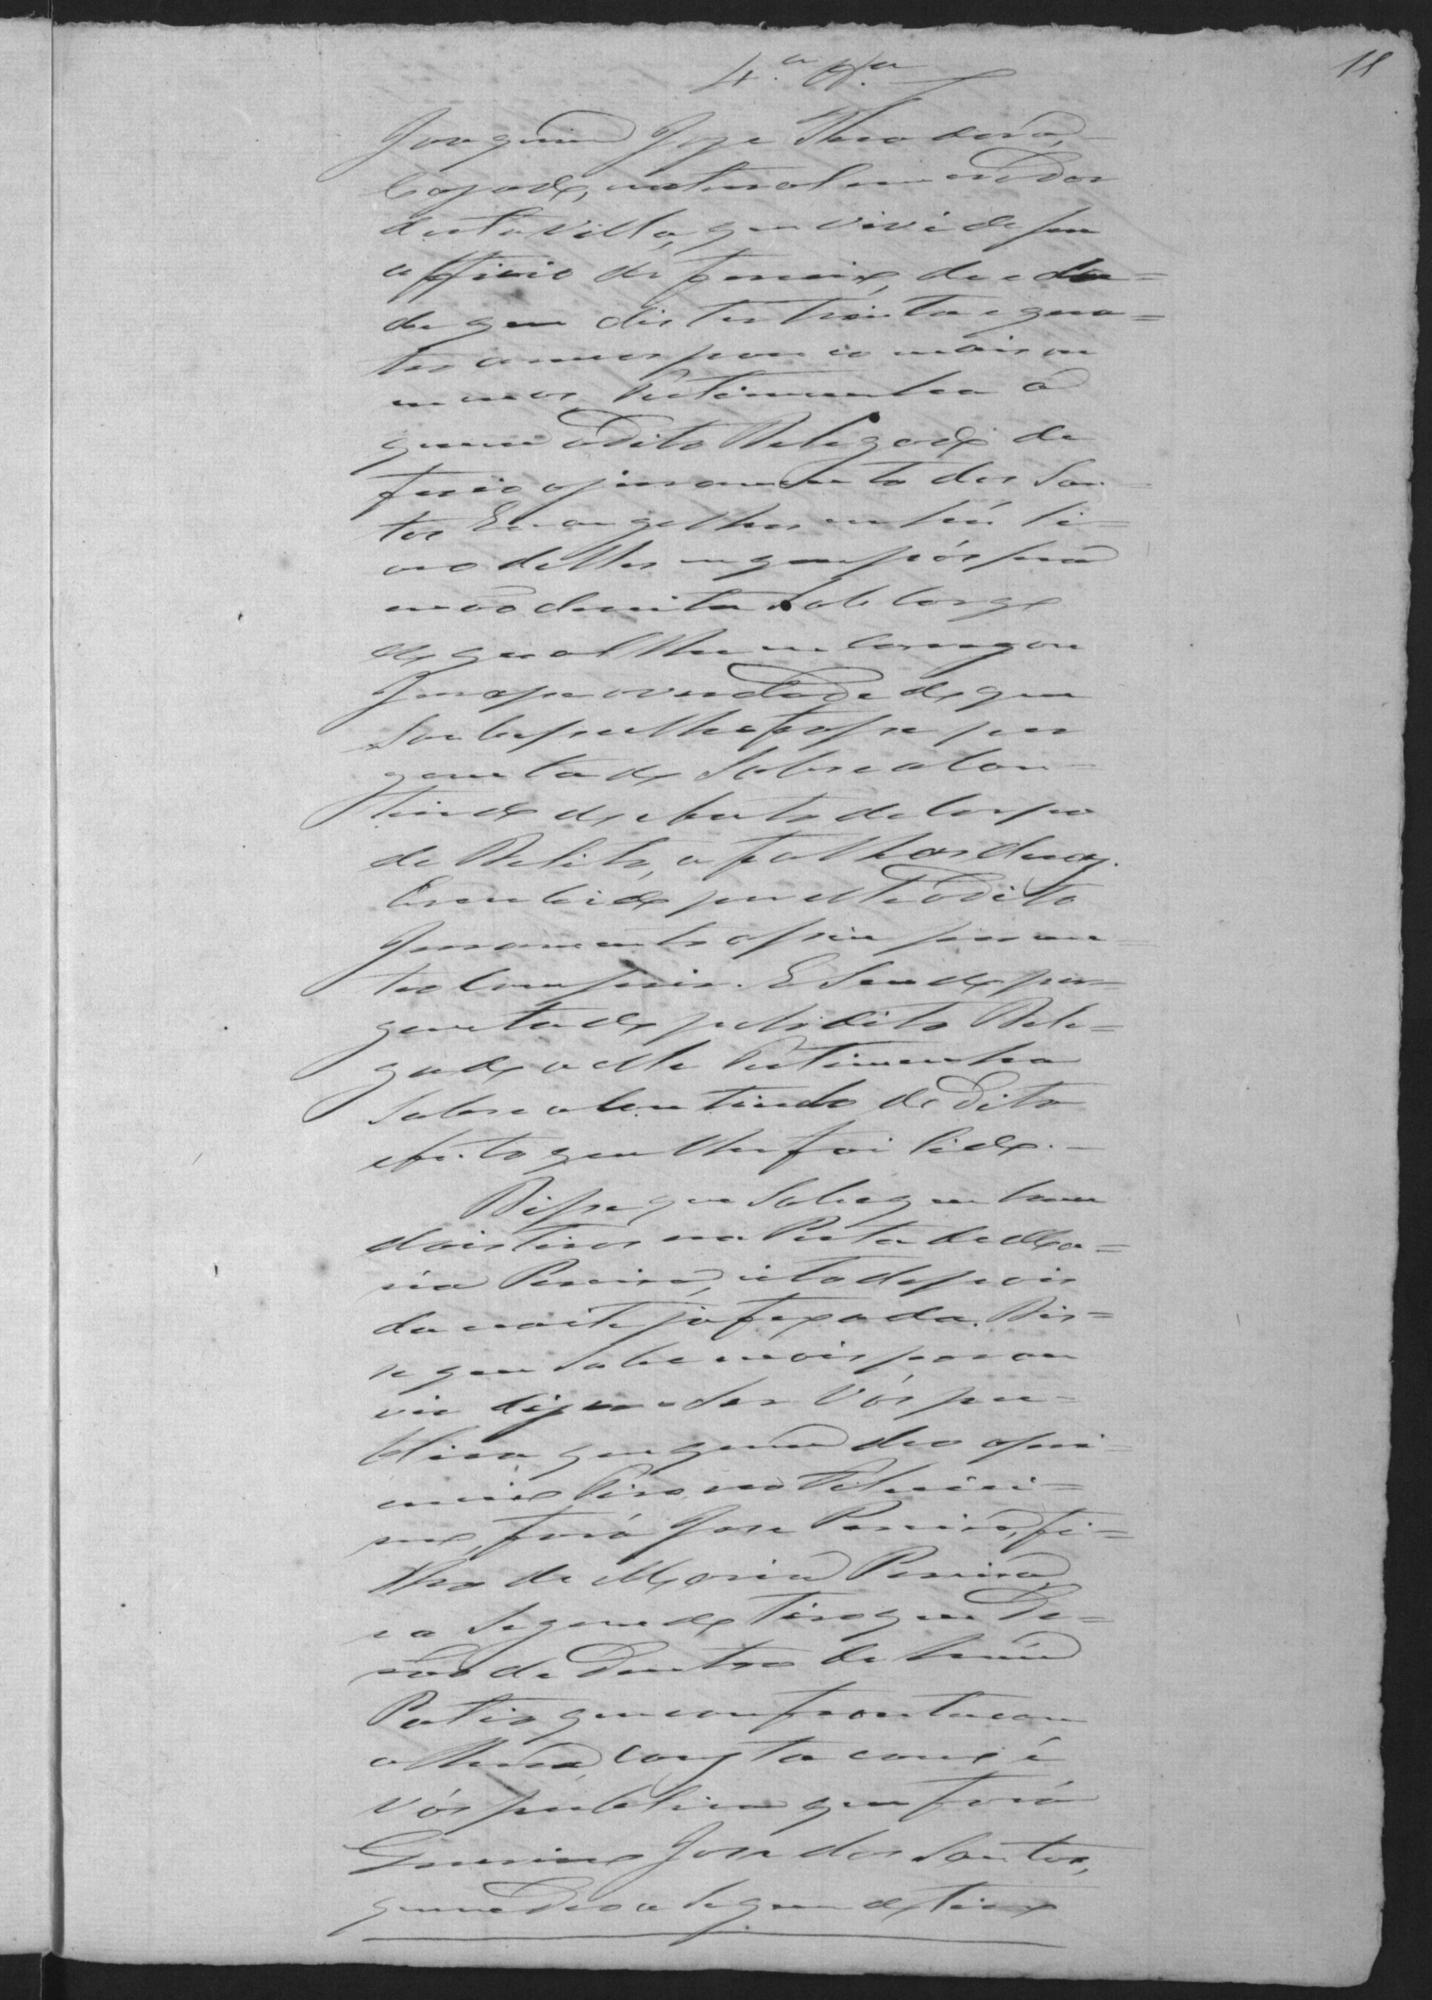 11
4.ª Tª
Joaquim Jose Theodoro,
Casado, natural e morador
desta Villa, que vive de seu
officio de ferreiro, de eda=
de que disse ter trinta e qua=
tro annos pouco mais ou
menos testimunha a
quem o dito Delegado de
ferio o juramento dos San-
tos Evangelhos em hum li-
vro delles em que pôs sua
mão direita sob cargo
do qual lhe encarregou
Jurasse a verdade do que
Soubesse e lhe fosse per
guntado sobre o con-
tiudo do auto de Corpo
de Delicto, a folhas duas.
E recebido por elle o dito
Juramento assim prome-
teo Cumprir. E sendo per-
guntado pelo dito Dele=
gado a elle testimunha
sobre o contiudo do dito
auto que lhe foi lido.
Disse que sabe que houve
dois tiros na Porta de Ma=
ria Pereira, isto depois
da noite já fexada. Dis=
se que sabe mais por ou
vir dizer e der Vós pu-
blica que quem deo o pri-
meiro tiro no
, fora Jose Pereira, fi=
lho de Maria Pereira,
e o segundo tiro que De=
rão de dentro de hum
Patio que confronta com
a mesma, consta como é
Vós publica que fora
Jose dos Santos,
quem deo o segundo tiro